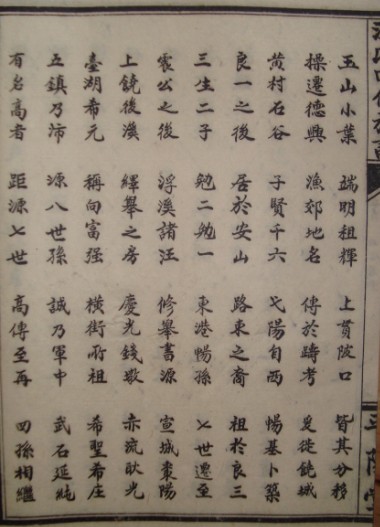 玉山小葉 端明祖輝 上貫陂口 皆其分移
操遷德興 漁郊地名 傳於躊考 徙饒城
黄村石谷 子賢千六 弋陽自西 暢基卜築
良一之後 居於安山 路東之裔 祖於良三
三生二子 勉二勉一 東港暢孫 七世遷至
震公之後 浮溪諸汪 修舉書源 宣城棗陽
上饒後漢 繹舉之房 慶光錢墩 赤流耿光
臺湖希元 稱向富强 橫街府祖 希聖希庄
五鎮乃沛 源八世孫 誠乃軍中 武石延純
有名高者 距源七世 高傳至再 四孫相繼